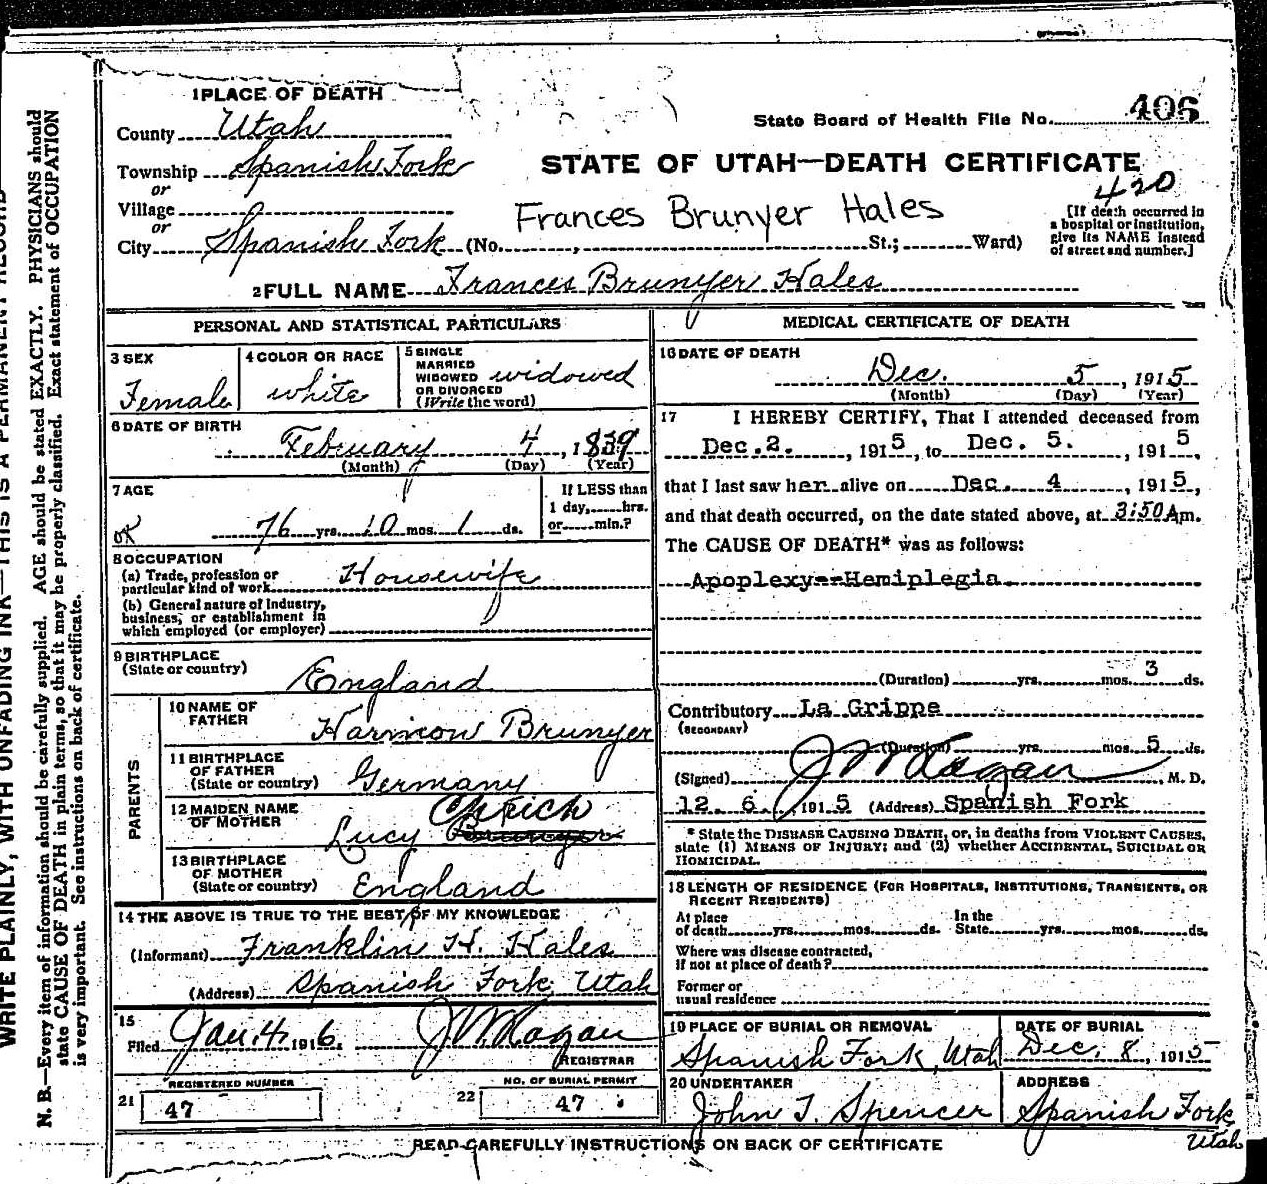 1 PLACE OF DEATH
County Utah
Township Spanish Fork
or
Village
or
City Spanish Fork (No. , St.; Ward)
State Board of Health File No. 406
STATE OF UTAH—DEATH CERTIFICATE
420
Frances Brunyer Hales
[If death occurred in
a hospital or institution,
give its NAME instead
of street and number.]
2 FULL NAME Frances Brunyer Hales
PERSONAL AND STATISTICAL PARTICULARS
3 SEX
Female
4 COLOR OR RACE
white
5 SINGLE
MARRIED
WIDOWED
OR DIVORCED
(Write the word)
widowed
6 DATE OF BIRTH
February 4, 1839
(Month) (Day) (Year)
7 AGE
ok
76 yrs. 10 mos. 1 ds.
If LESS than
1 day, hrs.
or min.?
8 OCCUPATION
(a) Trade, profession or
particular kind of work Housewife
(b) General nature of Industry,
business, or establishment in
which employed (or employer)
9 BIRTHPLACE
(State or country)
England
PARENTS
10 NAME OF
FATHER
Harmon Brunyer
11 BIRTHPLACE
OF FATHER
(State or country)
Germany
12 MAIDEN NAME
OF MOTHER
Lucy Brunyer
13 BIRTHPLACE
OF MOTHER
(State or country)
England
14 THE ABOVE IS TRUE TO THE BEST OF MY KNOWLEDGE
(Informant) Franklin H. Hales
(Address) Spanish Fork Utah
15
Filed Jan. 4, 1916. J W Hagan
REGISTRAR
REGISTERED NUMBER
21 47
NO. OF BURIAL PERMIT
22 47
MEDICAL CERTIFICATE OF DEATH
16 DATE OF DEATH
Dec. 5, 1915
(Month) (Day) (Year)
17 I HEREBY CERTIFY, That I attended deceased from
Dec. 2. , 1915, to Dec. 5. , 1915,
that I last saw her alive on Dec. 4 , 1915,
and that death occurred, on the date stated above, at 3:50 Am.
The CAUSE OF DEATH* was as follows:
Apoplexy--Hemiplegia.
(Duration) yrs. mos. 3 ds.
Contributory La Grippe
(SECONDARY)
(Duration) yrs. mos. 5 ds.
(Signed) J W Hagan, M. D.
12. 6. , 1915 (Address) Spanish Fork
* State the DISEASE CAUSING DEATH, or, in deaths from VIOLENT CAUSES,
state (1) MEANS OF INJURY; and (2) whether ACCIDENTAL, SUICIDAL OR
HOMICIDAL.
18 LENGTH OF RESIDENCE (FOR HOSPITALS, INSTITUTIONS, TRANSIENTS, OR
RECENT RESIDENTS)
At place
of death yrs. mos. ds.
In the
State yrs. mos. ds.
Where was disease contracted,
If not at place of death?
Former or
usual residence
19 PLACE OF BURIAL OR REMOVAL
Spanish Fork, Utah
DATE OF BURIAL
Dec. 8, 1915
20 UNDERTAKER
John T. Spencer
ADDRESS
Spanish Fork,
Utah
READ CAREFULLY INSTRUCTIONS ON BACK OF CERTIFICATE
WRITE PLAINLY, WITH UNFADING INK—THIS IS A PERMANENT RECORD
N. B.—Every item of information should be carefully supplied. AGE should be stated EXACTLY. PHYSICIANS should
state CAUSE OF DEATH in plain terms, so that it may be properly classified. Exact statement of OCCUPATION
is very important. See instructions on back of certificate.